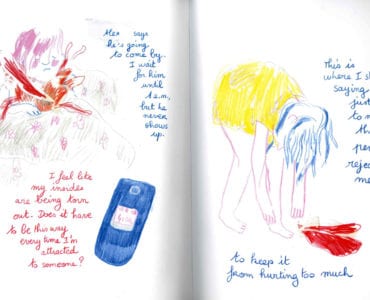 Alex says
he's going
to come by.
I wait
for him
until
1 a.m,
but he
never
shows
up.
I feel like
my insides
are being torn
out. Does it have
to be this way
every time I'm
attracted
to someone?
This is
where I
saying
to
to keep it
from hurting too much